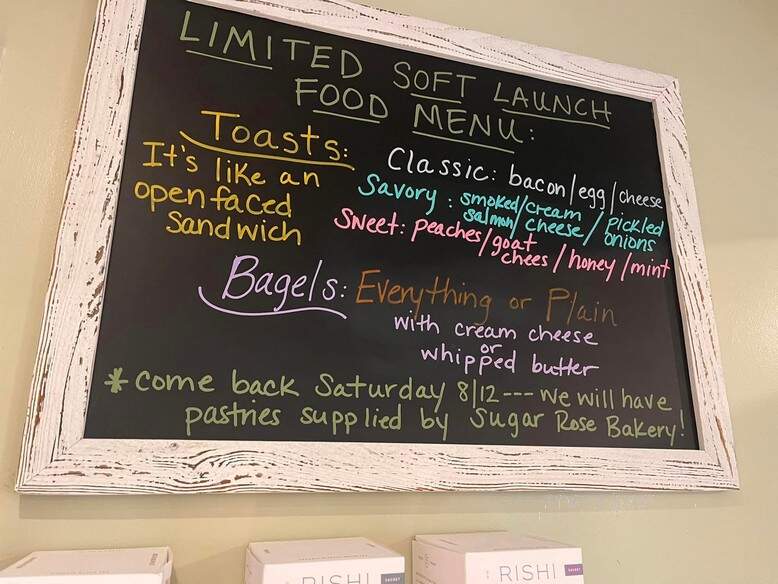 LIMITED SOFT LAUNCH
FOOD MENU:
Toasts:
It's like an
open faced
Sandwich
Classic: bacon/egg/cheese
Savory: smoked salmon/cream cheese/pickled onions
Sweet: peaches/goat chees/honey/mint
Bagels: Everything or Plain
with cream cheese
or
whipped butter
* come back Saturday 8/12--- we will have
pastries supplied by Sugar Rose Bakery!
RISHI
RISHI